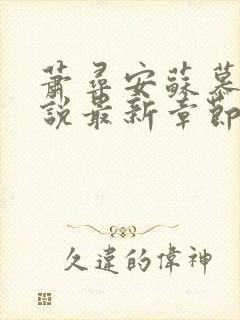 蕭尋安蘇慕
說最新章節
久違的偉神